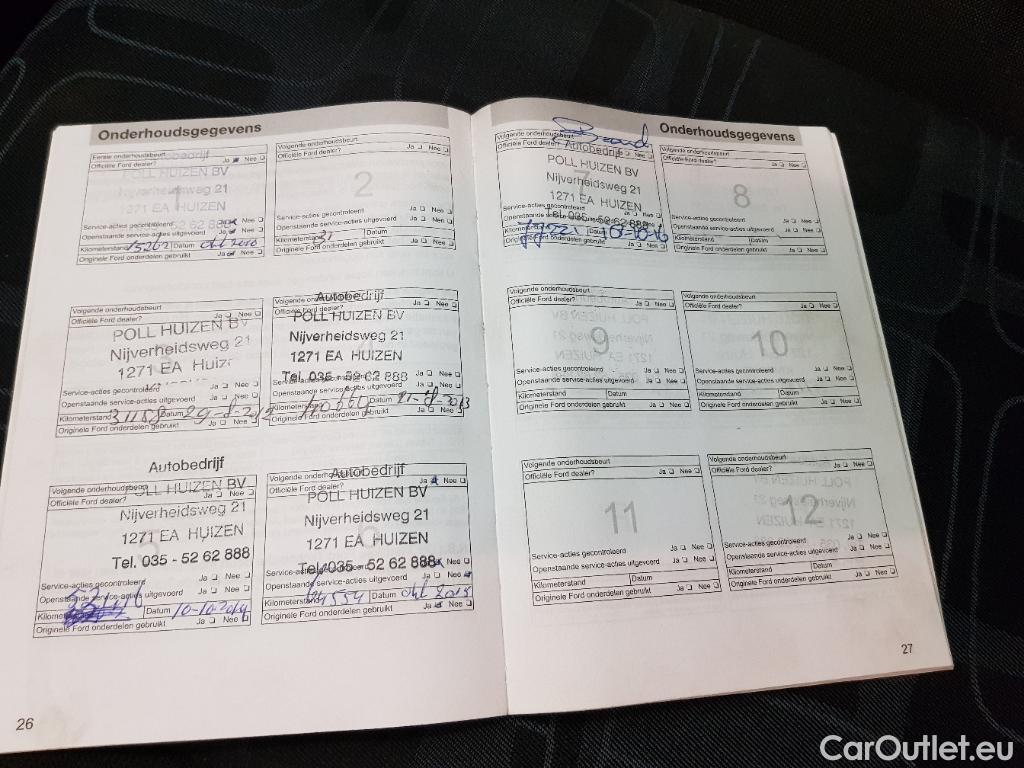 Onderhoudsgegevens
Eerste onderhoudsbeurt
Officiële Ford dealer? Ja Nee
Autobedrijf
POLL HUIZEN BV
Nijverheidsweg 21
1271 EA HUIZEN
Service-acties gecontroleerd
Openstaande service-acties uitgevoerd Ja Nee
Kilometerstand 15262 Datum okt 2010
Originele Ford onderdelen gebruikt Ja Nee
Volgende onderhoudsbeurt
Officiële Ford dealer? Ja Nee
2
Service-acties gecontroleerd Ja Nee
Openstaande service-acties uitgevoerd Ja Nee
Kilometerstand Datum
Originele Ford onderdelen gebruikt Ja Nee
Volgende onderhoudsbeurt
Officiële Ford dealer? Ja Nee
POLL HUIZEN BV
Nijverheidsweg 21
1271 EA Huizen
Service-acties gecontroleerd Ja Nee
Openstaande service-acties uitgevoerd Ja Nee
Kilometerstand Datum
Originele Ford onderdelen gebruikt Ja Nee
Volgende onderhoudsbeurt
Autobedrijf
POLL HUIZEN BV
Nijverheidsweg 21
1271 EA HUIZEN
Tel. 035 - 52 62 888
Openstaande service-acties uitgevoerd Ja Nee
Kilometerstand Datum
Originele Ford onderdelen gebruikt Ja Nee
Autobedrijf
Volgende onderhoudsbeurt
POLL HUIZEN BV
Officiële Ford dealer? Ja Nee
Nijverheidsweg 21
1271 EA HUIZEN
Tel. 035 - 52 62 888
Service-acties gecontroleerd Ja Nee
Openstaande service-acties uitgevoerd Ja Nee
Datum 10-10-2014
Originele Ford onderdelen gebruikt Ja Nee
Autobedrijf
Volgende onderhoudsbeurt
Officiële Ford dealer? Ja Nee
POLL HUIZEN BV
Nijverheidsweg 21
1271 EA HUIZEN
Tel. 035 - 52 62 888
Openstaande service-acties uitgevoerd Nee
Kilometerstand 64554 Datum okt 2015
Originele Ford onderdelen gebruikt Ja Nee
26
Onderhoudsgegevens
Volgende onderhoudsbeurt
Officiële Ford dealer?
Autobedrijf
POLL HUIZEN BV
Nijverheidsweg 21
1271 EA HUIZEN
Service-acties gecontroleerd
Tel. 035 - 52 62 888
Datum 10-10-16
Originele Ford onderdelen gebruikt Ja Nee
Volgende onderhoudsbeurt
Officiële Ford dealer? Ja Nee
8
Service-acties gecontroleerd Ja Nee
Openstaande service-acties uitgevoerd Ja Nee
Kilometerstand Datum
Originele Ford onderdelen gebruikt Ja Nee
Volgende onderhoudsbeurt
Officiële Ford dealer? Ja Nee
9
Service-acties gecontroleerd Ja Nee
Openstaande service-acties uitgevoerd Ja Nee
Kilometerstand Datum
Originele Ford onderdelen gebruikt Ja Nee
Volgende onderhoudsbeurt
Officiële Ford dealer? Ja Nee
10
Service-acties gecontroleerd Ja Nee
Openstaande service-acties uitgevoerd Ja Nee
Kilometerstand Datum
Originele Ford onderdelen gebruikt Ja Nee
Volgende onderhoudsbeurt
Officiële Ford dealer? Ja Nee
11
Service-acties gecontroleerd Ja Nee
Openstaande service-acties uitgevoerd Ja Nee
Kilometerstand Datum
Originele Ford onderdelen gebruikt Ja Nee
Volgende onderhoudsbeurt
Officiële Ford dealer? Ja Nee
12
Service-acties gecontroleerd Ja Nee
Openstaande service-acties uitgevoerd Ja Nee
Kilometerstand Datum
Originele Ford onderdelen gebruikt Ja Nee
27
CarOutlet.eu